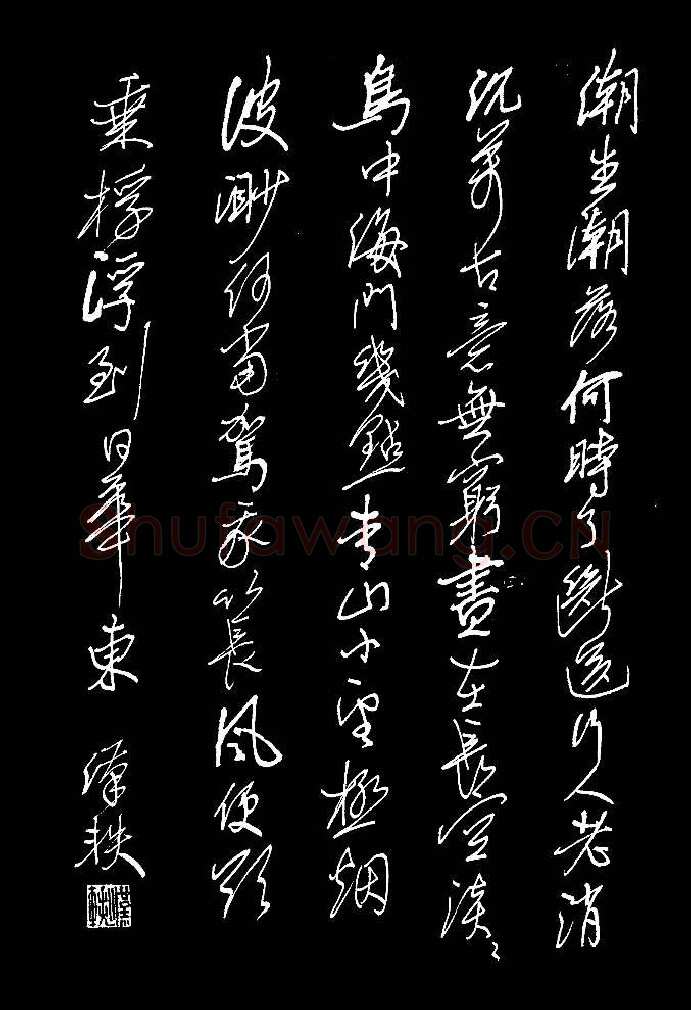 潮生潮落何時了斷送行人老消
沉萬古意無窮盡在長空淡〻
鳥中海門幾點青山小望極烟
波渺何當駕我以長風便欲
乘桴浮到日華東 漢軼
Shufawang.CN